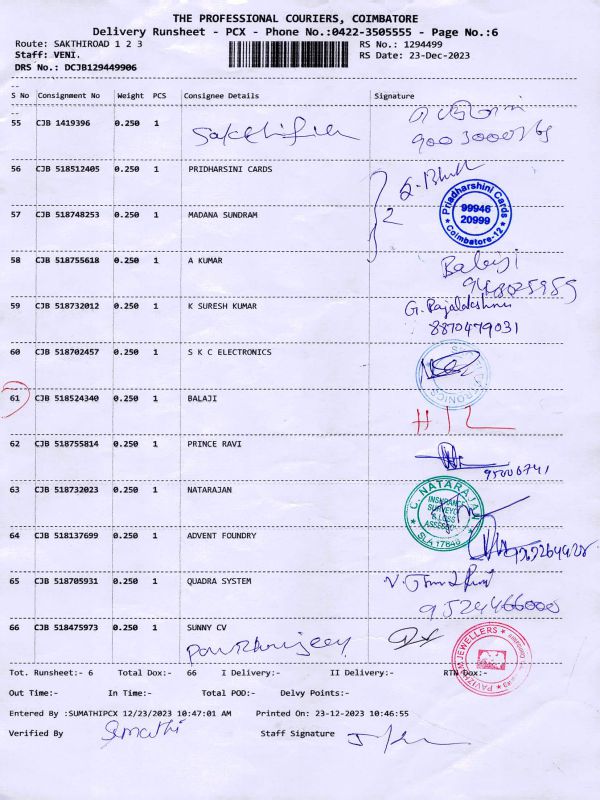 THE PROFESSIONAL COURIERS, COIMBATORE
Delivery Runsheet - PCX - Phone No.:0422-3505555 - Page No.:6
Route: SAKTHIROAD 1 2 3 RS No.: 1294499
Staff: VENI. RS Date: 23-Dec-2023
DRS No.: DCJB129449906
S No Consignment No Weight PCS Consignee Details Signature
55 CJB 1419396 0.250 1
56 CJB 518512405 0.250 1 PRIDHARSINI CARDS
Priadharshini Cards 99946 20999 Coimbatore-12
57 CJB 518748253 0.250 1 MADANA SUNDRAM 2
58 CJB 518755618 0.250 1 A KUMAR Balaji
59 CJB 518732012 0.250 1 K SURESH KUMAR G. Rajalakshmi
8870479031
60 CJB 518702457 0.250 1 S K C ELECTRONICS
61 CJB 518524340 0.250 1 BALAJI
62 CJB 518755814 0.250 1 PRINCE RAVI
63 CJB 518732023 0.250 1 NATARAJAN
C. NATARAJAN INSURANCE SURVEYOR & LOSS ASSESSOR
64 CJB 518137699 0.250 1 ADVENT FOUNDRY
65 CJB 518705931 0.250 1 QUADRA SYSTEM
9524466000
66 CJB 518475973 0.250 1 SUNNY CV
PAVIZHAM JEWELLERS
Tot. Runsheet:- 6 Total Dox:- 66 I Delivery:- II Delivery:- RTN Dox:-
Out Time:- In Time:- Total POD:- Delvy Points:-
Entered By :SUMATHIPCX 12/23/2023 10:47:01 AM Printed On: 23-12-2023 10:46:55
Verified By Sumathi Staff Signature